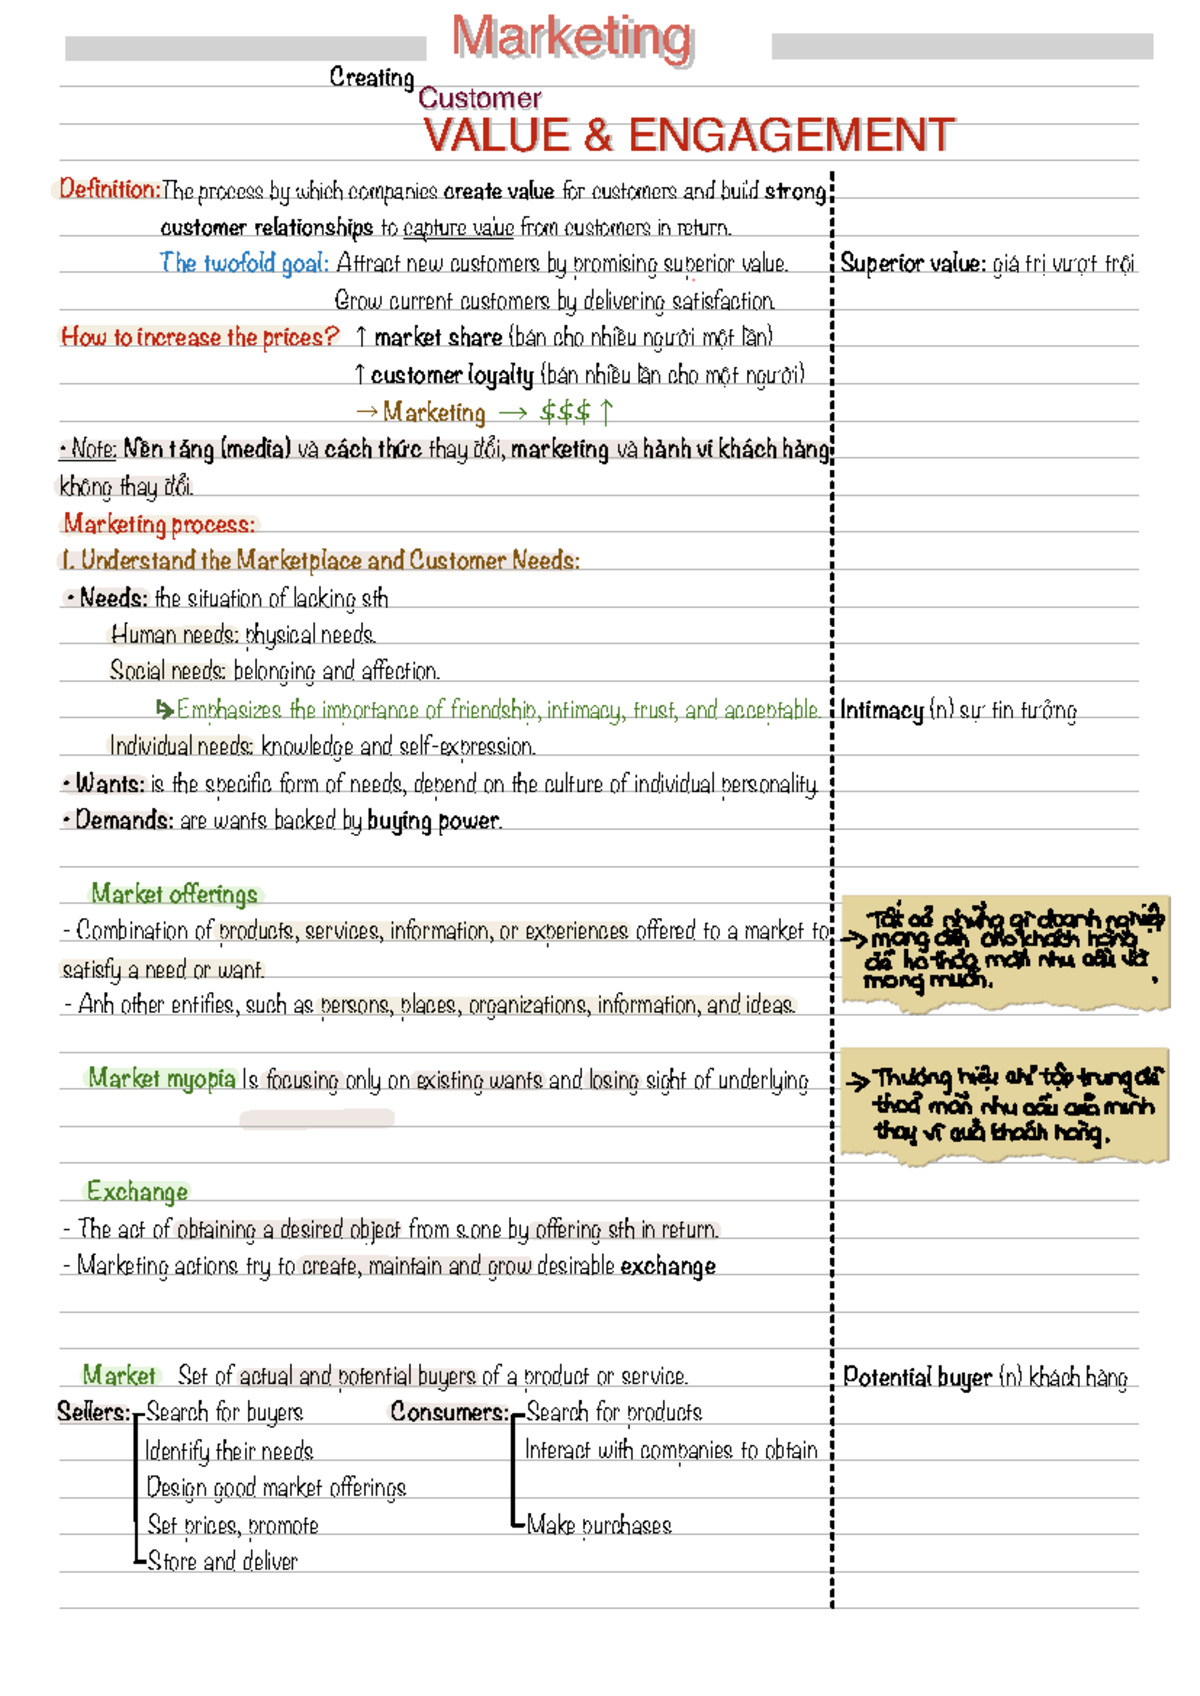 Marketing
Creating
Customer
VALUE & ENGAGEMENT
Definition: The process by which companies create value for customers and build strong
customer relationships to capture value from customers in return.
The twofold goal: Attract new customers by promising superior value.
Superior value: giá trị vượt trội
Grow current customers by delivering satisfaction.
How to increase the prices? ↑ market share (bán cho nhiều người một lần)
↑ customer loyalty (bán nhiều lần cho một người)
→ Marketing → $$$ ↑
• Note: Nền tảng (media) và cách thức thay đổi, marketing và hành vi khách hàng
không thay đổi.
Marketing process:
1. Understand the Marketplace and Customer Needs:
• Needs: the situation of lacking sth
Human needs: physical needs.
Social needs: belonging and affection.
↳ Emphasizes the importance of friendship, intimacy, trust, and acceptable.
Intimacy (n) sự tin tưởng
Individual needs: knowledge and self-expression.
• Wants: is the specific form of needs, depend on the culture of individual personality.
• Demands: are wants backed by buying power.
Market offerings
- Combination of products, services, information, or experiences offered to a market to
satisfy a need or want.
- Anh other entifies, such as persons, places, organizations, information, and ideas.
→ Tất cả những gì doanh nghiệp
mang đến cho khách hàng
để họ thỏa mãn nhu cầu và
mong muốn.
Market myopia Is focusing only on existing wants and losing sight of underlying
→ Thương hiệu chỉ tập trung để
thoả mãn nhu cầu của mình
thay vì của khách hàng.
Exchange
- The act of obtaining a desired object from s.one by offering sth in return.
- Marketing actions try to create, maintain and grow desirable exchange
Market Set of actual and potential buyers of a product or service.
Potential buyer (n) khách hàng
Sellers: Search for buyers
Identify their needs
Design good market offerings
Set prices, promote
Store and deliver
Consumers: Search for products
Interact with companies to obtain
Make purchases